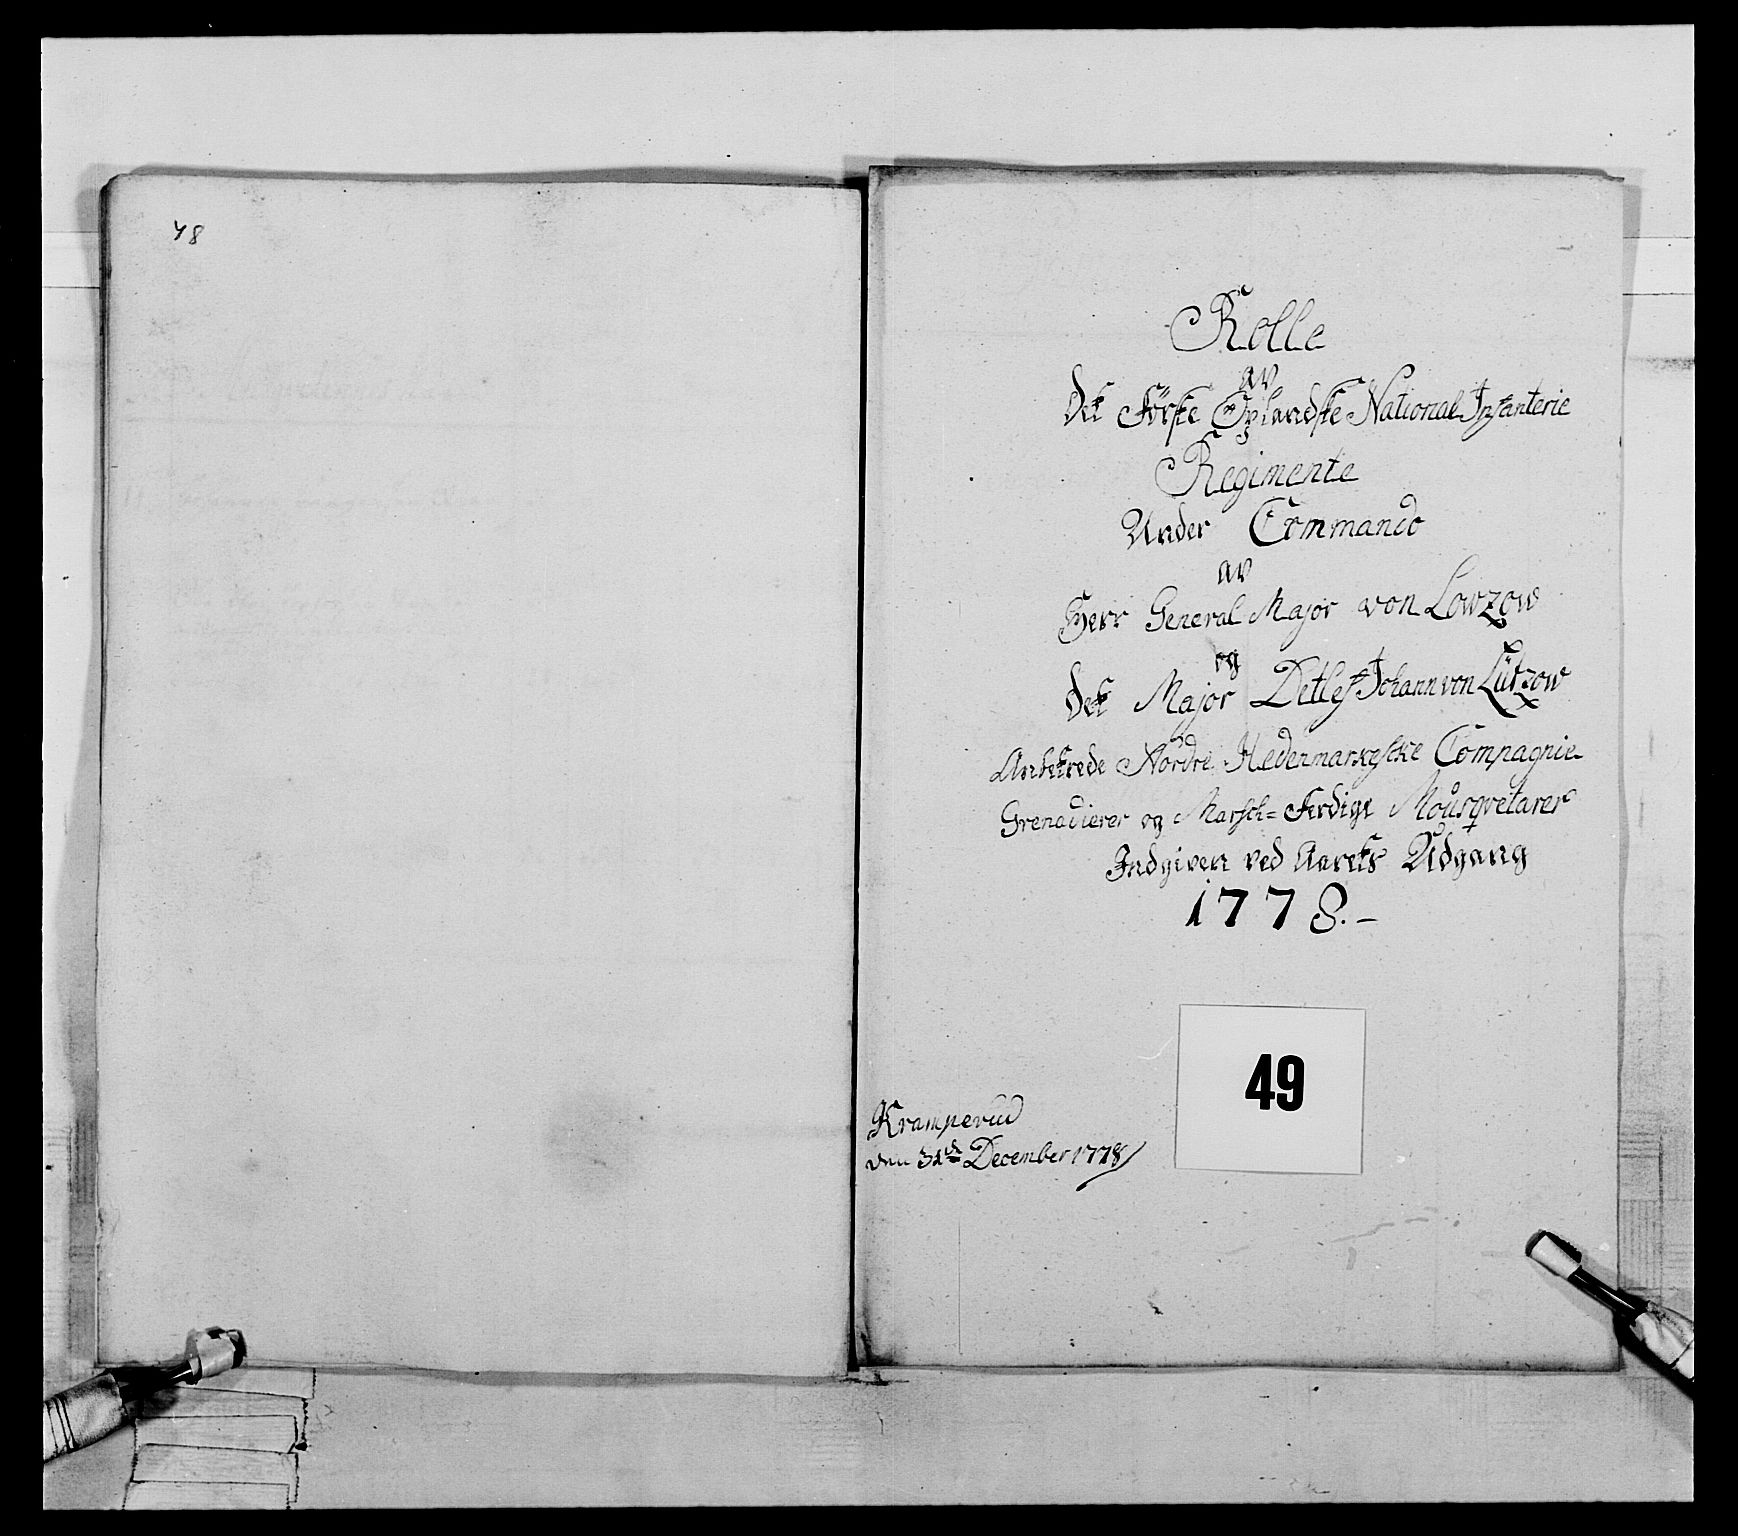 48
Rolle
av
Det Förste Oplandske National Infanterie
Regimente
Under Commando
av
Herr General Major von Lowzow
og
Det Major Detlef Johann von Lützow
Anbetrede Nordre Hedemarkske Compagnie
Grenadierer og Marsch= Ferdige Mousqvetarer
Indgiven ved Aarets Udgang
1778.-
49
Kramperud
den 31te December 1778